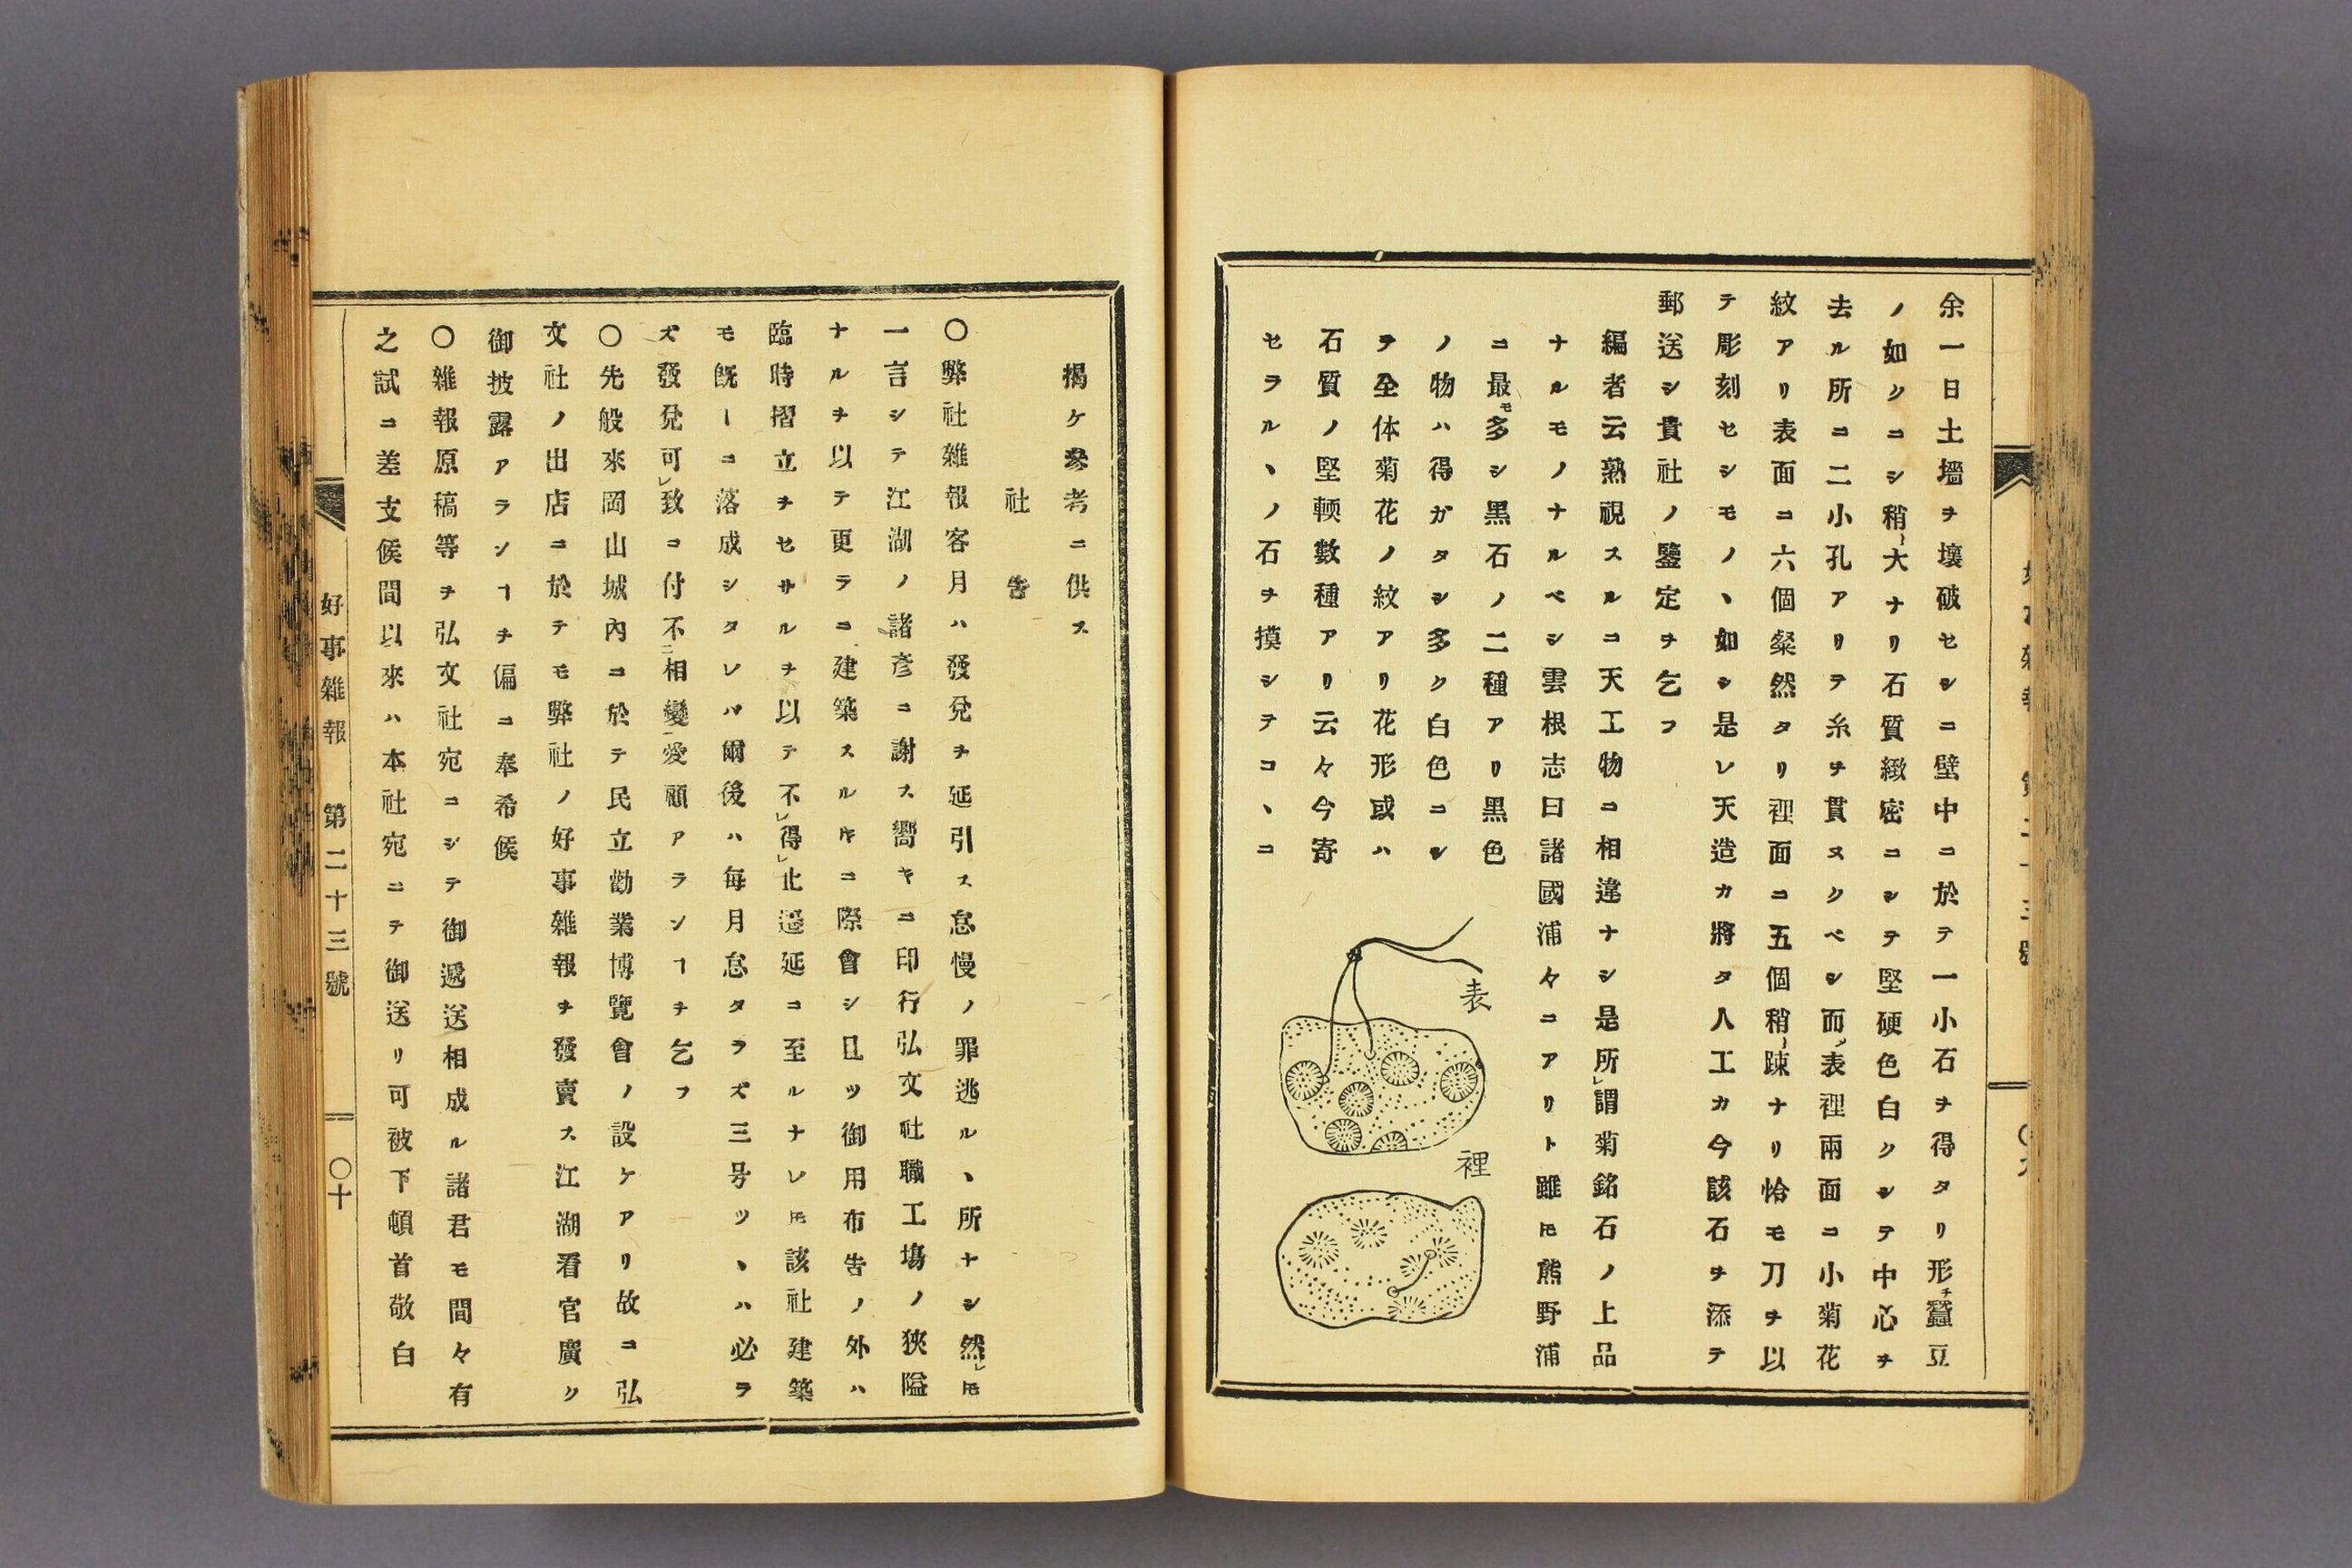 余一日土墻ヲ壞破セシニ壁中ニ於テ一小石ヲ得タリ形チ蠶豆
ノ如クニシ稍〻大ナリ石質緻密ニシテ堅硬色白クシテ中心ヲ
去ル所ニ二小孔アリテ糸ヲ貫ヌクベシ而ノ表裡兩面ニ小菊花
紋アリ表面ニ六個粲然タリ裡面ニ五個稍〻踈ナリ恰モ刀ヲ以
テ彫刻セシモノヽ如シ是レ天造カ將タ人工カ今該石ヲ添テ
郵送シ貴社ノ鑒定ヲ乞フ
編者云熟視スルニ天工物ニ相違ナシ是所レ謂菊銘石ノ上品
ナルモノナルベシ雲根志曰諸國浦々ニアリト雖𪜈熊野浦
ニ最モ多シ黒石ノ二種アリ黒色
ノ物ハ得ガタシ多ク白色ニシ
ヲ全体菊花ノ紋アリ花形或ハ
石質ノ堅輭數種アリ云々今寄
セラルヽノ石ヲ摸シテコヽニ
表
裡
揭ケ參考ニ供ス
社告
〇弊社雜報客月ハ發兌ヲ延引ス怠慢ノ罪逃ルヽ所ナシ然レ𪜈
一言シテ江湖ノ諸彥ニ謝ス嚮キニ印行弘文社職工塲ノ狹隘
ナルヲ以テ更ラニ建築スルキニ際會シ且ツ御用布告ノ外ハ
臨時摺立ヲセサルヲ以テ不レ得レ止遷延ニ至ルナレ𪜈該社建築
モ旣ーニ落成シタレバ爾後ハ每月怠タラズ三号ツヽハ必ラ
ズ發兌可レ致ニ付不二相變一愛顧アランヿヲ乞フ
〇先般來岡山城內ニ於テ民立勸業博覽會ノ設ケアリ故ニ弘
文社ノ出店ニ於テモ弊社ノ好事雜報ヲ發賣ス江湖看官廣ク
御披露アランヿヲ偏ニ奉希候
〇雜報原稿等ヲ弘文社宛ニシテ御遞送相成ル諸君モ間々有
之試ニ差支候間以來ハ本社宛ニテ御送リ可被下頓首敬白
好事雜報　第二十三號　〇十